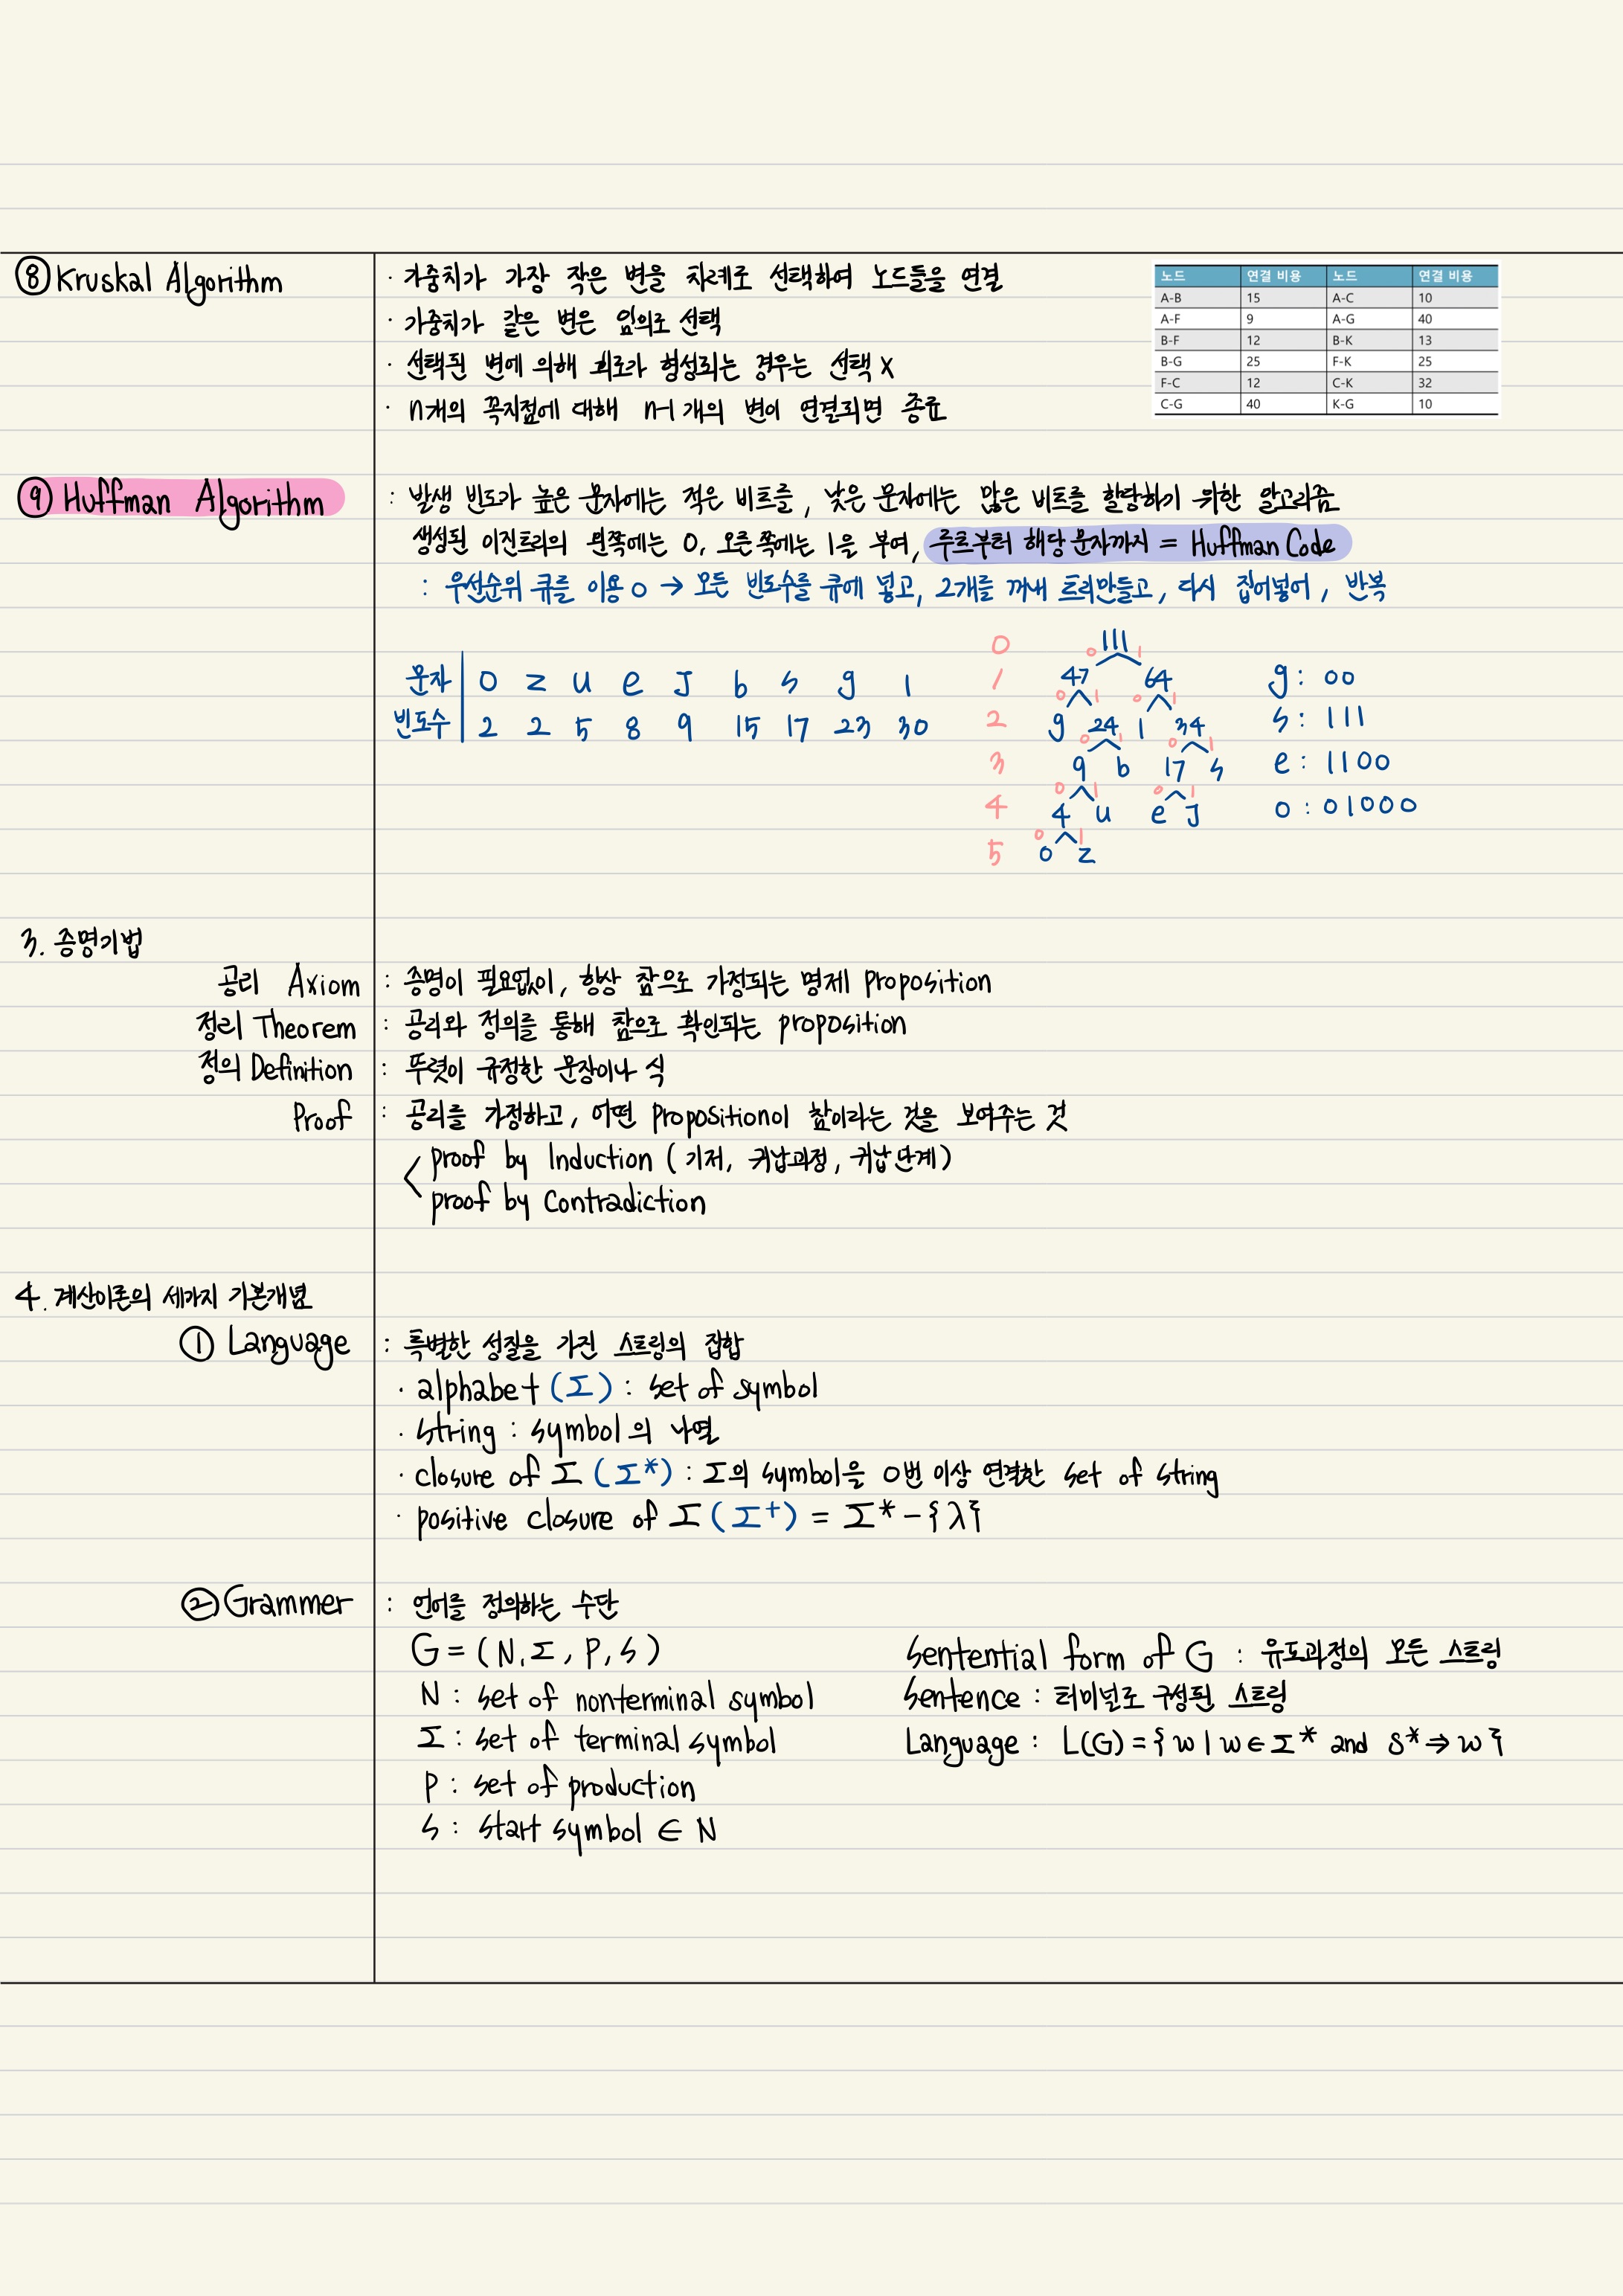 ⑧ Kruskal Algorithm
· 가중치가 가장 작은 변을 차례로 선택하여 노드들을 연결
· 가중치가 같은 변은 임의로 선택
· 선택된 변에 의해 회로가 형성되는 경우는 선택 X
· n개의 꼭지점에 대해 n-1개의 변이 연결되면 종료
노드 연결 비용 노드 연결 비용
A-B 15 A-C 10
A-F 9 A-G 40
B-F 12 B-K 13
B-G 25 F-K 25
F-C 12 C-K 32
C-G 40 K-G 10
⑨ Huffman Algorithm : 발생 빈도가 높은 문자에는 적은 비트를, 낮은 문자에는 많은 비트를 할당하기 위한 알고리즘
생성된 이진트리의 왼쪽에는 0, 오른쪽에는 1을 부여, 루트부터 해당 문자까지 = Huffman Code
: 우선순위 큐를 이용 o → 모든 빈도수를 큐에 넣고, 2개를 꺼내 트리만들고, 다시 집어넣어, 반복
문자 o z u e J b s g 1
빈도수 2 2 5 8 9 15 17 23 30
0 111
0 1
1 47 64
0 1 0 1
2 g 24 1 34
0 1 0 1
3 9 b 17 s
0 1 0 1
4 4 u e J
0 1
5 o z
g : 00
s : 111
e : 1100
o : 01000
3. 증명기법
공리 Axiom : 증명이 필요없이, 항상 참으로 가정되는 명제 proposition
정리 Theorem : 공리와 정의를 통해 참으로 확인되는 proposition
정의 Definition : 뚜렷이 규정한 문장이나 식
Proof : 공리를 가정하고, 어떤 proposition이 참이라는 것을 보여주는 것
proof by Induction (기저, 귀납과정, 귀납단계)
proof by Contradiction
4. 계산이론의 세가지 기본개념
① Language : 특별한 성질을 가진 스트링의 집합
· alphabet (Σ) : set of symbol
· string : symbol의 나열
· closure of Σ (Σ*) : Σ의 symbol을 0번 이상 연결한 set of string
· positive closure of Σ (Σ+) = Σ* - {λ}
② Grammer : 언어를 정의하는 수단
G = (N, Σ, P, S)
N : set of nonterminal symbol
Σ : set of terminal symbol
P : set of production
S : start symbol ∈ N
Sentential form of G : 유도과정의 모든 스트링
Sentence : 터미널로 구성된 스트링
Language : L(G) = { w | w ∈ Σ* and S* ⇒ w }